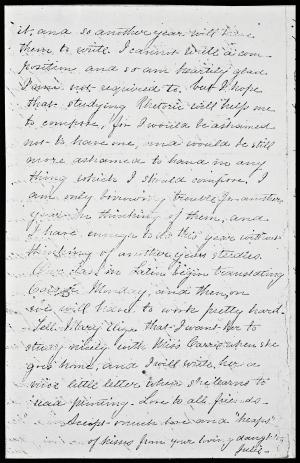 it, and so another year will have
them to write. I cannot write a com-
position and so am heartily glad
I am not required to, but I hope
that studying Rhetoric will help me
to compose, for I would be ashamed
not to have one, and would be still
more ashamed to hand in any
thing which I should compose. I
am only borrowing trouble for another
year in thinking of them, and
I have enough to do this year without
thinking of another years studies.
Our class in Latin begin translating
Monday, and then on
we will have to work pretty hard.
Tell Mary Eliza that I want her to
study nicely with Miss Carrie when she
goes home, and I will write her a
nice little letter when she learns to
read printing. Love to all friends.
Accept much love and "heaps"
of kisses from your loving daughter
Julie.